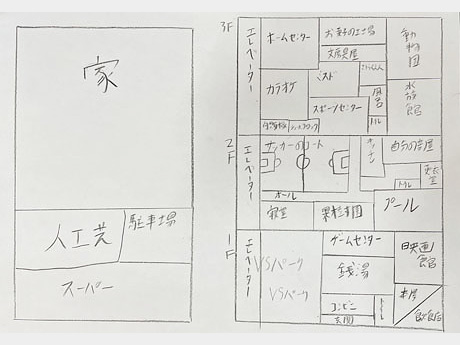 家
人工芝
駐車場
スーパー
3F
エレベーター
ホームセンター
お菓子の工場
文房具屋
動物園
カラオケ
ミスド
風呂
水族館
スポーツセンター
トイレ
2F
エレベーター
サッカーのコート
キッチン
自分の部屋
更衣室
トイレ
ホール
寝室
果樹園
プール
1F
エレベーター
VSパーク
VSパーク
ゲームセンター
映画館
銭湯
コンビニ
トイレ
玄関
本屋
飲食店